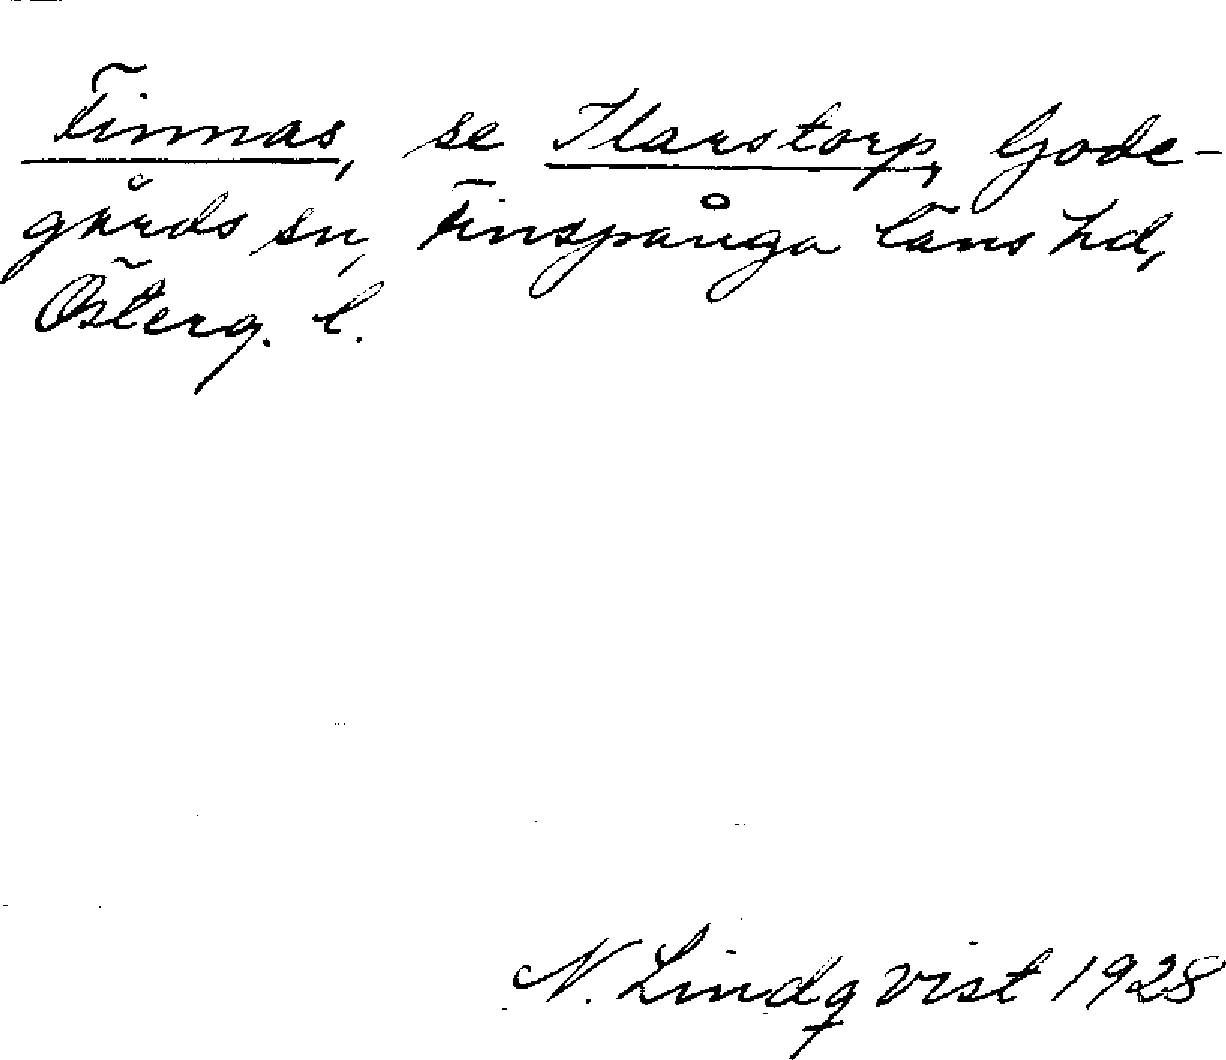 Finnas, se Harstorp, Gode-
gårds sn, Finspånga läns hd,
Österg. l.
N. Lindqvist 1928